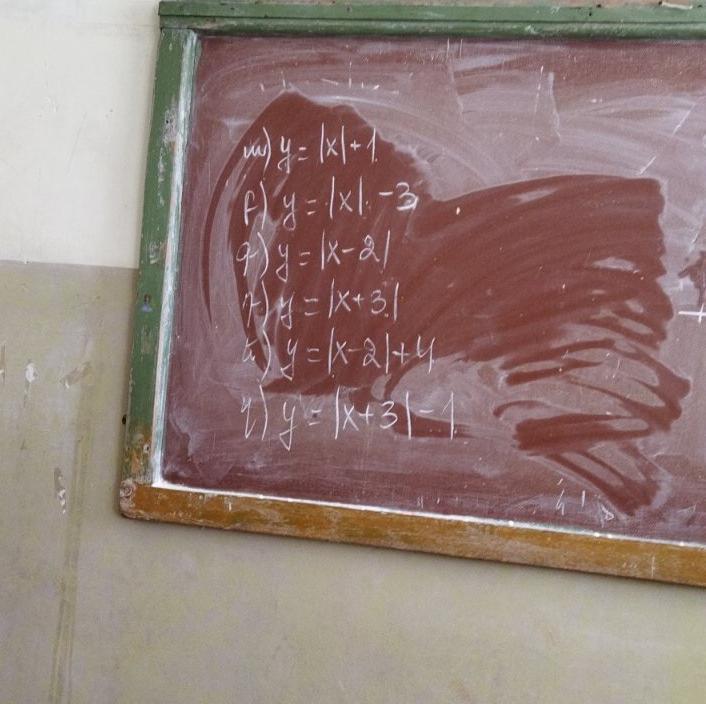 ա) y = |x| + 1
բ) y = |x| - 3
գ) y = |x-2|
դ) y = |x+3|
ե) y = |x-2| + 4
զ) y = |x+3| - 1